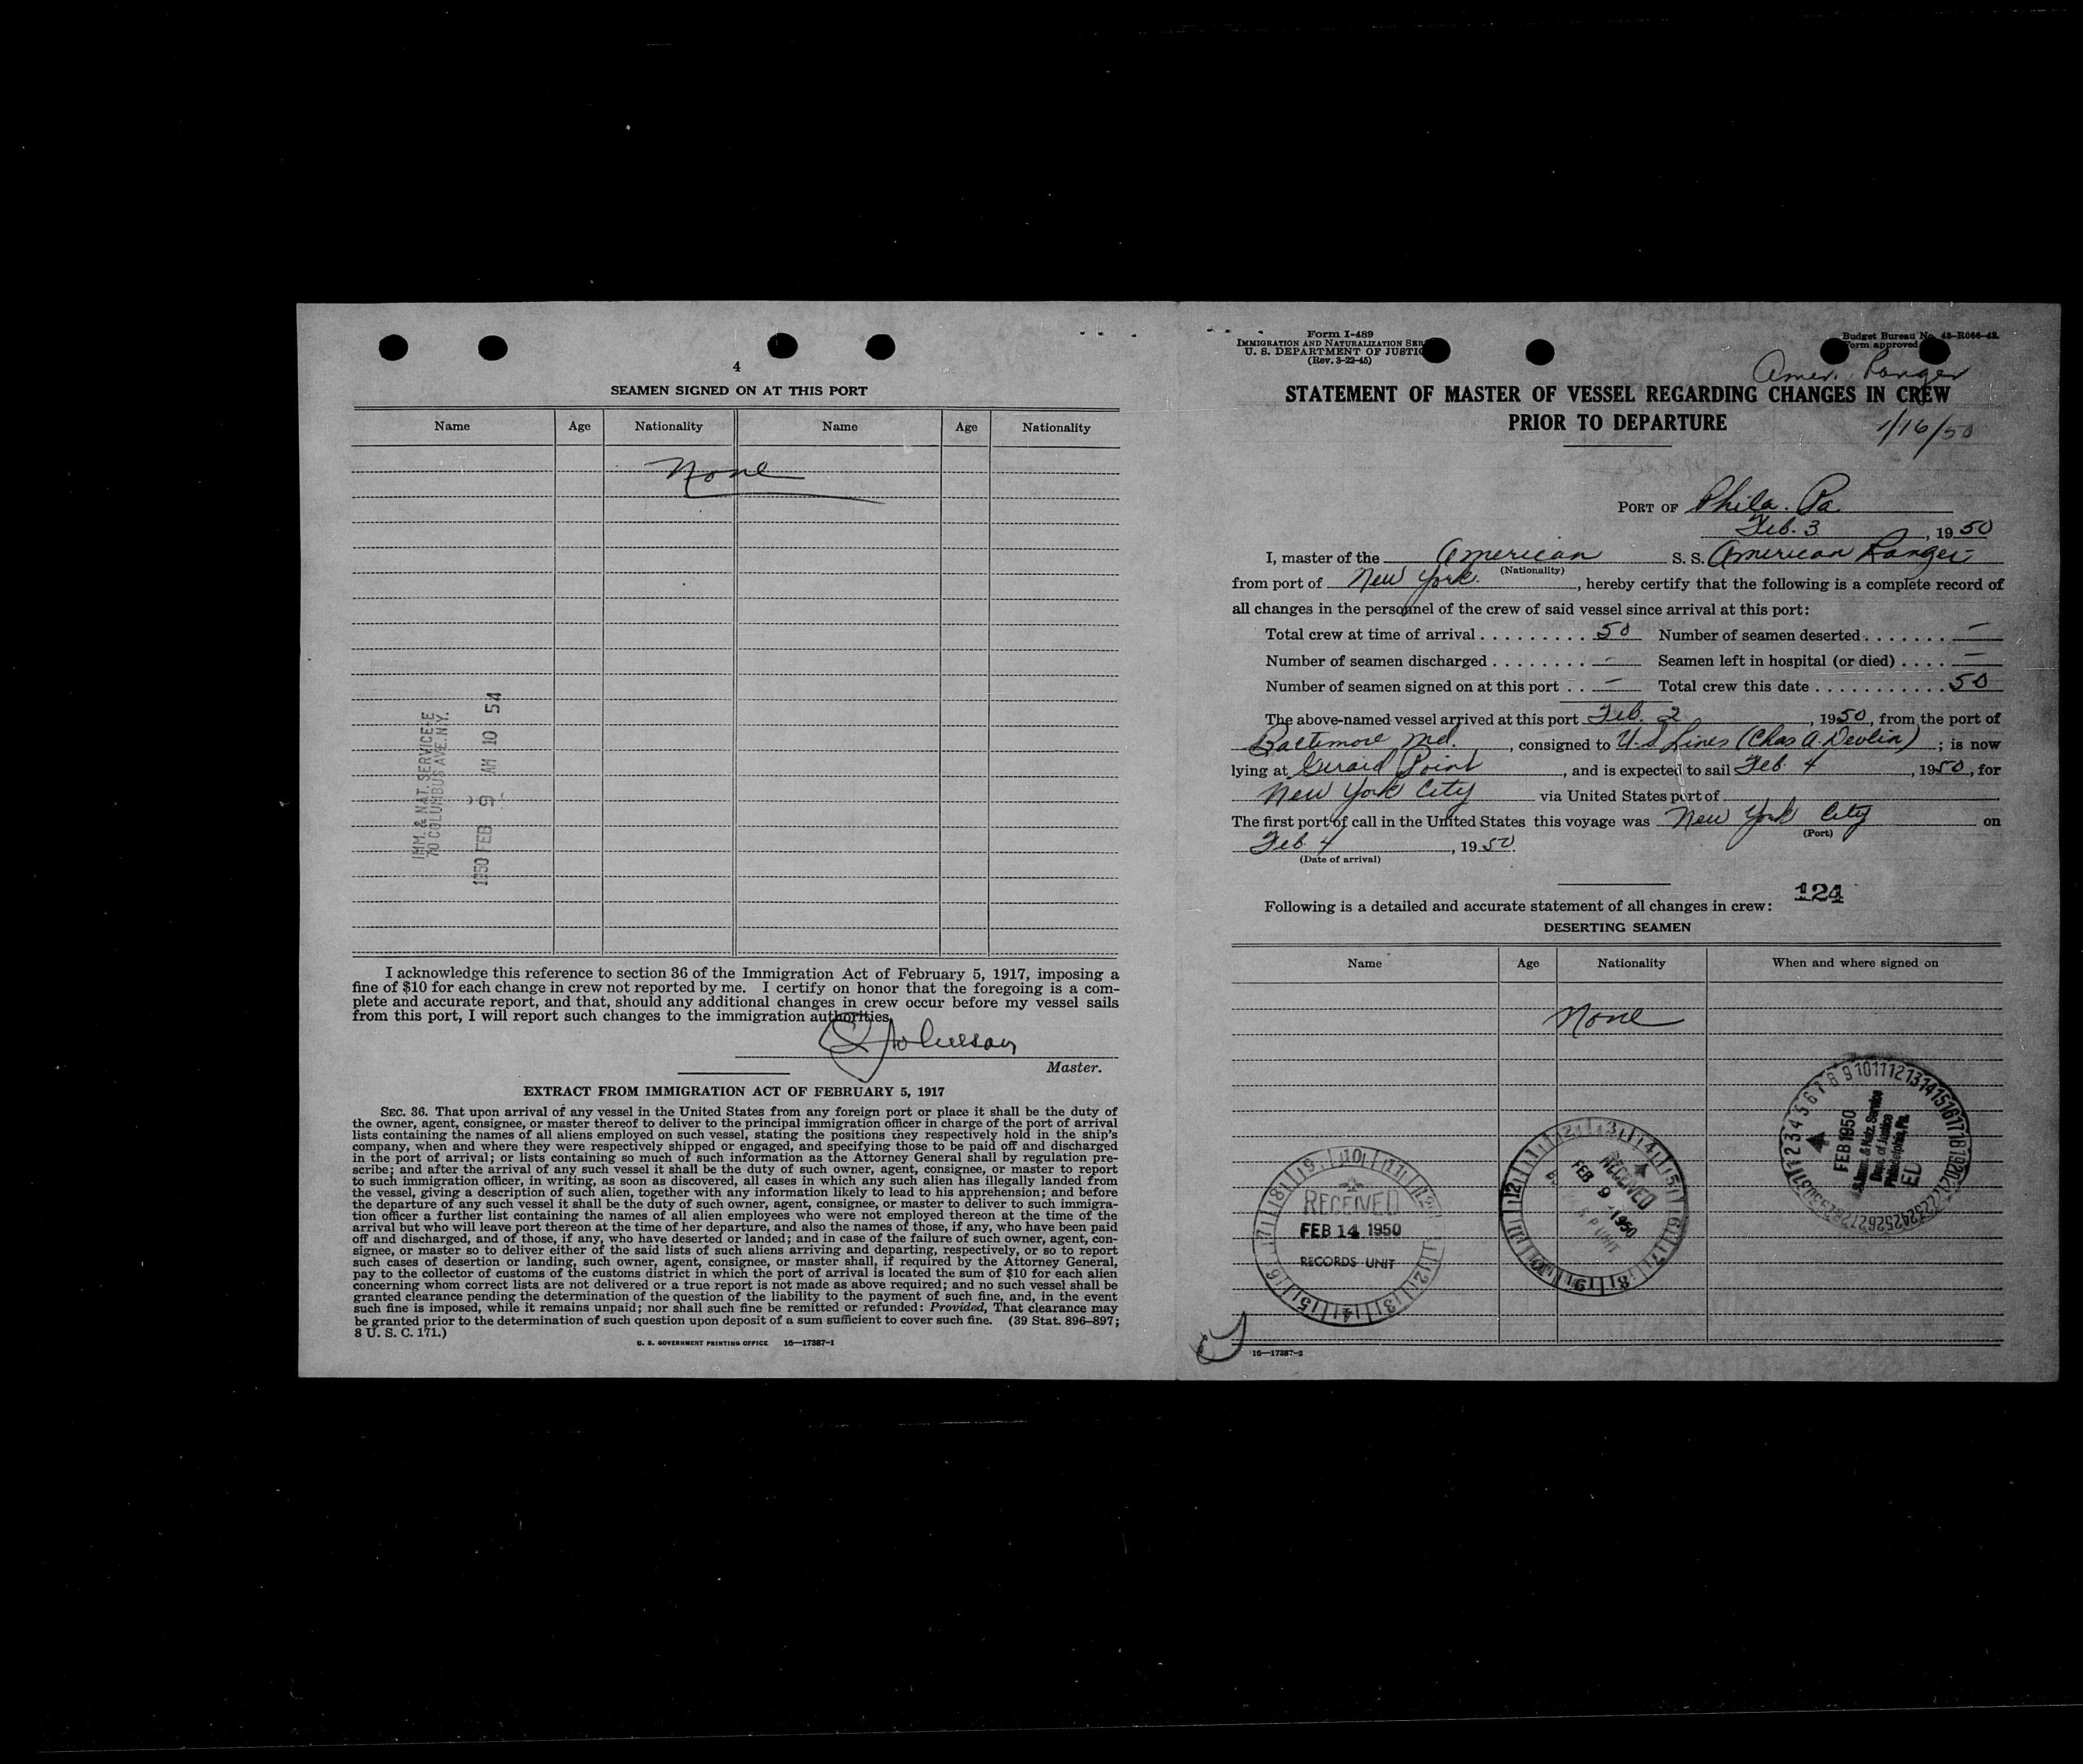 4
SEAMEN SIGNED ON AT THIS PORT
Name Age Nationality Name Age Nationality
None
IMM. & NAT. SERVICE
70 COLUMBUS AVE. N.Y.
1950 FEB 9 AM 10 54
I acknowledge this reference to section 36 of the Immigration Act of February 5, 1917, imposing a
fine of $10 for each change in crew not reported by me. I certify on honor that the foregoing is a com-
plete and accurate report, and that, should any additional changes in crew occur before my vessel sails
from this port, I will report such changes to the immigration authorities.
Johnson
Master.
EXTRACT FROM IMMIGRATION ACT OF FEBRUARY 5, 1917
SEC. 36. That upon arrival of any vessel in the United States from any foreign port or place it shall be the duty of
the owner, agent, consignee, or master thereof to deliver to the principal immigration officer in charge of the port of arrival
lists containing the names of all aliens employed on such vessel, stating the positions they respectively hold in the ship's
company, when and where they were respectively shipped or engaged, and specifying those to be paid off and discharged
in the port of arrival; or lists containing so much of such information as the Attorney General shall by regulation pre-
scribe; and after the arrival of any such vessel it shall be the duty of such owner, agent, consignee, or master to report
to such immigration officer, in writing, as soon as discovered, all cases in which any such alien has illegally landed from
the vessel, giving a description of such alien, together with any information likely to lead to his apprehension; and before
the departure of any such vessel it shall be the duty of such owner, agent, consignee, or master to deliver to such immigra-
tion officer a further list containing the names of all alien employees who were not employed thereon at the time of the
arrival but who will leave port thereon at the time of her departure, and also the names of those, if any, who have been paid
off and discharged, and of those, if any, who have deserted or landed; and in case of the failure of such owner, agent, con-
signee, or master so to deliver either of the said lists of such aliens arriving and departing, respectively, or so to report
such cases of desertion or landing, such owner, agent, consignee, or master shall, if required by the Attorney General,
pay to the collector of customs of the customs district in which the port of arrival is located the sum of $10 for each alien
concerning whom correct lists are not delivered or a true report is not made as above required; and no such vessel shall be
granted clearance pending the determination of the question of the liability to the payment of such fine, and, in the event
such fine is imposed, while it remains unpaid; nor shall such fine be remitted or refunded: Provided, That clearance may
be granted prior to the determination of such question upon deposit of a sum sufficient to cover such fine. (39 Stat. 896–897;
8 U. S. C. 171.)
U. S. GOVERNMENT PRINTING OFFICE 16—17387-1
Form I-489
IMMIGRATION AND NATURALIZATION SER
U. S. DEPARTMENT OF JUSTIC
(Rev. 3-22-45)
Budget Bureau No. 43-R066-42.
Form approved
Amer. Ranger
STATEMENT OF MASTER OF VESSEL REGARDING CHANGES IN CREW
PRIOR TO DEPARTURE
1/16/50
PORT OF Phila. Pa.
Feb. 3, 1950
I, master of the American S. S. American Ranger
(Nationality)
from port of New York., hereby certify that the following is a complete record of
all changes in the personnel of the crew of said vessel since arrival at this port:
Total crew at time of arrival . . . . . . . . . 50 Number of seamen deserted . . . . . . . —
Number of seamen discharged . . . . . . . . - Seamen left in hospital (or died) . . . . —
Number of seamen signed on at this port . . — Total crew this date . . . . . . . . . . . 50
The above-named vessel arrived at this port Feb. 2, 1950, from the port of
Baltimore Md., consigned to U.S Lines (Chas A. Devlin); is now
lying at Girard Point, and is expected to sail Feb. 4, 1950, for
New York City via United States port of
The first port of call in the United States this voyage was New York City on
(Port)
Feb 4, 1950.
(Date of arrival)
124
Following is a detailed and accurate statement of all changes in crew:
DESERTING SEAMEN
Name Age Nationality When and where signed on
None
FEB 1950
Imm. & Natz. Service
Dept. of Justice
Philadelphia, Pa.
RECEIVED
FEB 9 1950
RECEIVED
FEB 14 1950
RECORDS UNIT
16—17387-2